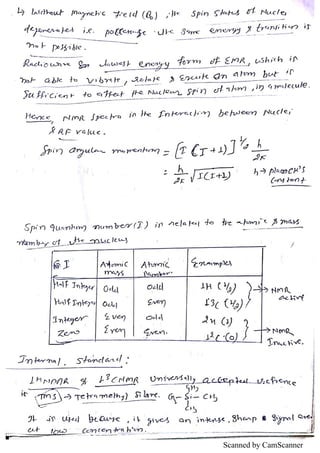 ↳ Without magnetic field (B₀), the spin states of Nuclei
degenerated i.e. possess the same energy & transition is
not possible.
Radiowave is lowest energy form of EMR, which is
not able to vibrate, rotate & Excite an atom but is
Sufficient to affect the Nuclear spin of atom, in a molecule.
Hence, NMR spectra in the Interaction between Nuclei
& RF value.
Spin angular momentum = [I (I+1)]^½ h/2π
= h/2π √I(I+1) h → planck's constant
Spin quantum number (I) is related to the atomic & mass
number of the nucleus
I | Atomic mass | Atomic Number | Examples
Half Integer | Odd | Odd | 1H (1/2)
Half Integer | Odd | Even | 13C (1/2) → NMR active
Integer | Even | Odd | 2H (1)
Zero | Even | Even. | 12C (0) → NMR Inactive.
Internal. Standard:
1HNMR & 13CNMR Universally accepted refrence
is TMS → Tetramethyl Silane. CH₃
C- Si- CH₃
CH₃
It is used because, it gives an intense, Sharp & Signal even
at low concentration.
Scanned by CamScanner